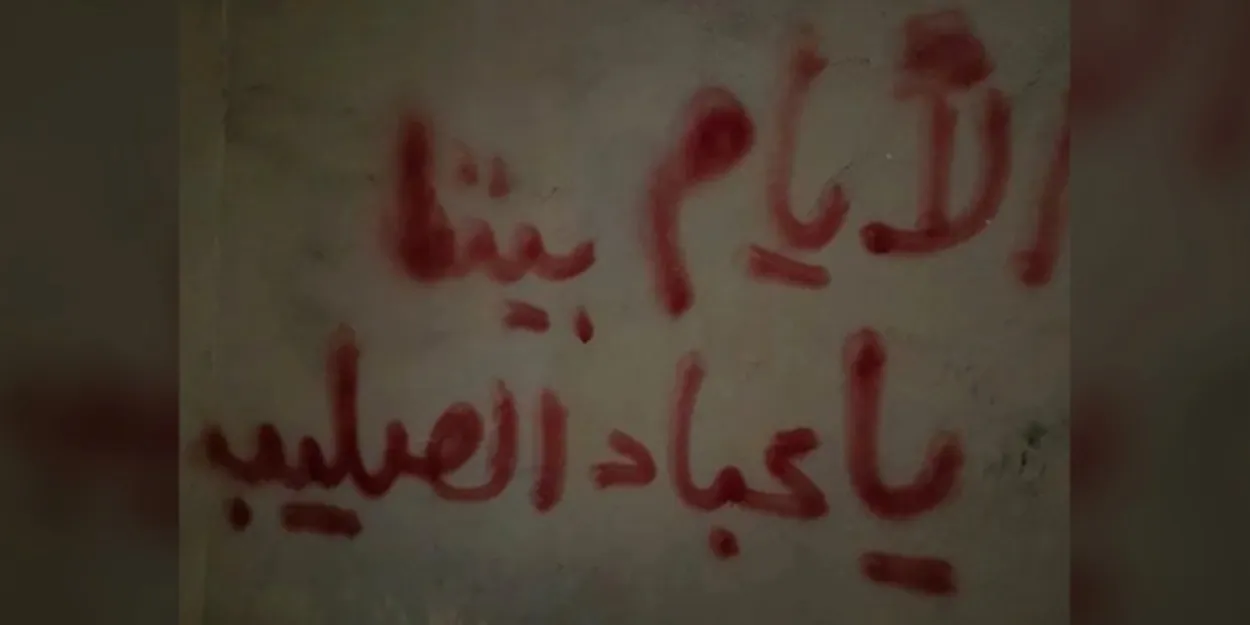 الأيام بيننا
يا عباد الصليب